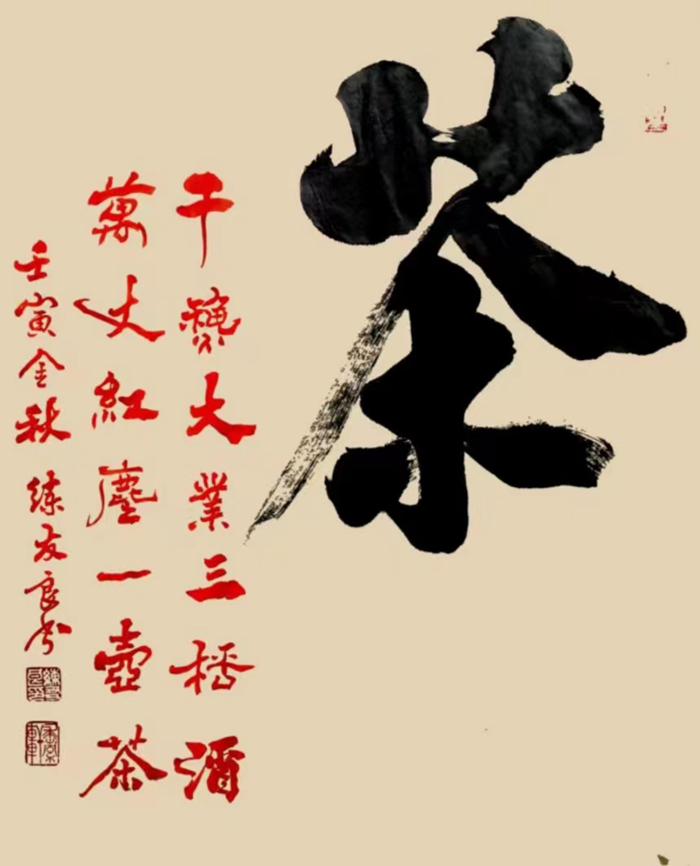 茶
千龝大業三桮酒
萬丈紅塵一壺茶
壬寅金秋 练友良书